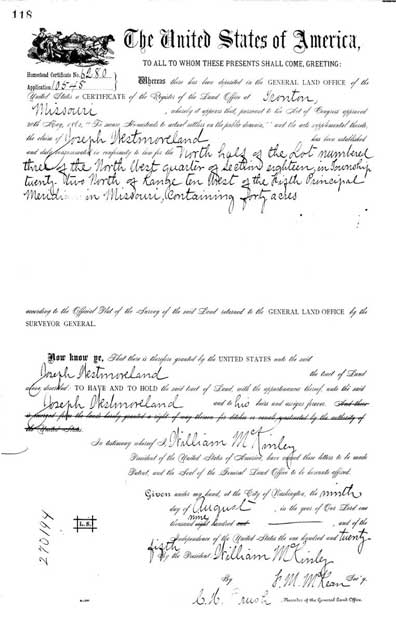 118
The United States of America,
TO ALL TO WHOM THESE PRESENTS SHALL COME, GREETING:
Homestead Certificate No. 6280
Application 10548
Whereas there has been deposited in the GENERAL LAND OFFICE of the
United States a CERTIFICATE of the Register of the Land Office at Ironton,
Missouri, whereby it appears that, pursuant to the Act of Congress approved
20th May, 1862, "To secure Homesteads to actual settlers on the public domain," and the acts supplemental thereto,
the claim of Joseph Westmoreland has been established
and duly consummated in conformity to law for the North half of the Lot numbered
three of the North West quarter of Section eighteen, in Township
twenty two North of Range ten West of the Fifth Principal
Meridian in Missouri, Containing forty acres
according to the Official Plat of the Survey of the said Land returned to the GENERAL LAND OFFICE by the
SURVEYOR GENERAL.
Now know ye, That there is therefore granted by the UNITED STATES unto the said
Joseph Westmoreland the tract of Land
above described: TO HAVE AND TO HOLD the said tract of Land, with the appurtenances thereof, unto the said
Joseph Westmoreland and to his heirs and assigns forever.
of the United States.
In testimony whereof I, William McKinley
President of the United States of America, have caused these letters to be made
Patent, and the Seal of the General Land Office to be hereunto affixed.
Given under my hand, at the City of Washington, the ninth
day of August, in the year of Our Lord one
thousand nine eight hundred and , and of the
Independence of the United States the one hundred and twenty-
fifth
By the President: William McKinley
By F. M. McKean Sec'y.
C. H. Brush, Recorder of the General Land Office.
L.S.